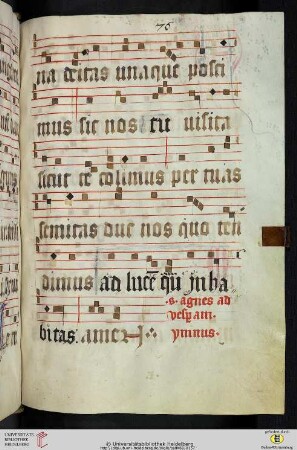 76
na deitas unaque posci
mus sic nos tu uisita
sicut te colimus per tuas
semitas duc nos quo ten
dimus ad lucē quā inha
bitas amen
s. agnes ad
vesp an
ymnus
UNIVERSITÄTS-
BIBLIOTHEK
HEIDELBERG
© Universitätsbibliothek Heidelberg